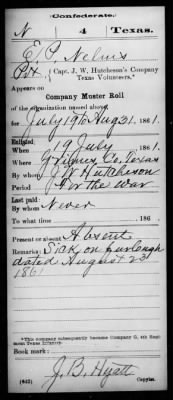 Confederate.
N 4 Texas.
E. P. Nelms
Pvt { Capt. J. W. Hutcheson's Company
Texas Volunteers.*
Appears on
Company Muster Roll
of the organization named above,
for July 19 to Aug 31, 1861.
Enlisted:
When 19 July, 1861.
Where Grimes Co. Texas
By whom J. W. Hutcheson
Period For the war
Last paid:
By whom Never
To what time , 186 .
Present or absent Absent
Remarks: Sick on furlough
dated August 23
1861
*This company subsequently became Company G, 4th Regiment Texas Infantry.
Book mark:
J. B. Hyatt
(642) Copyist.